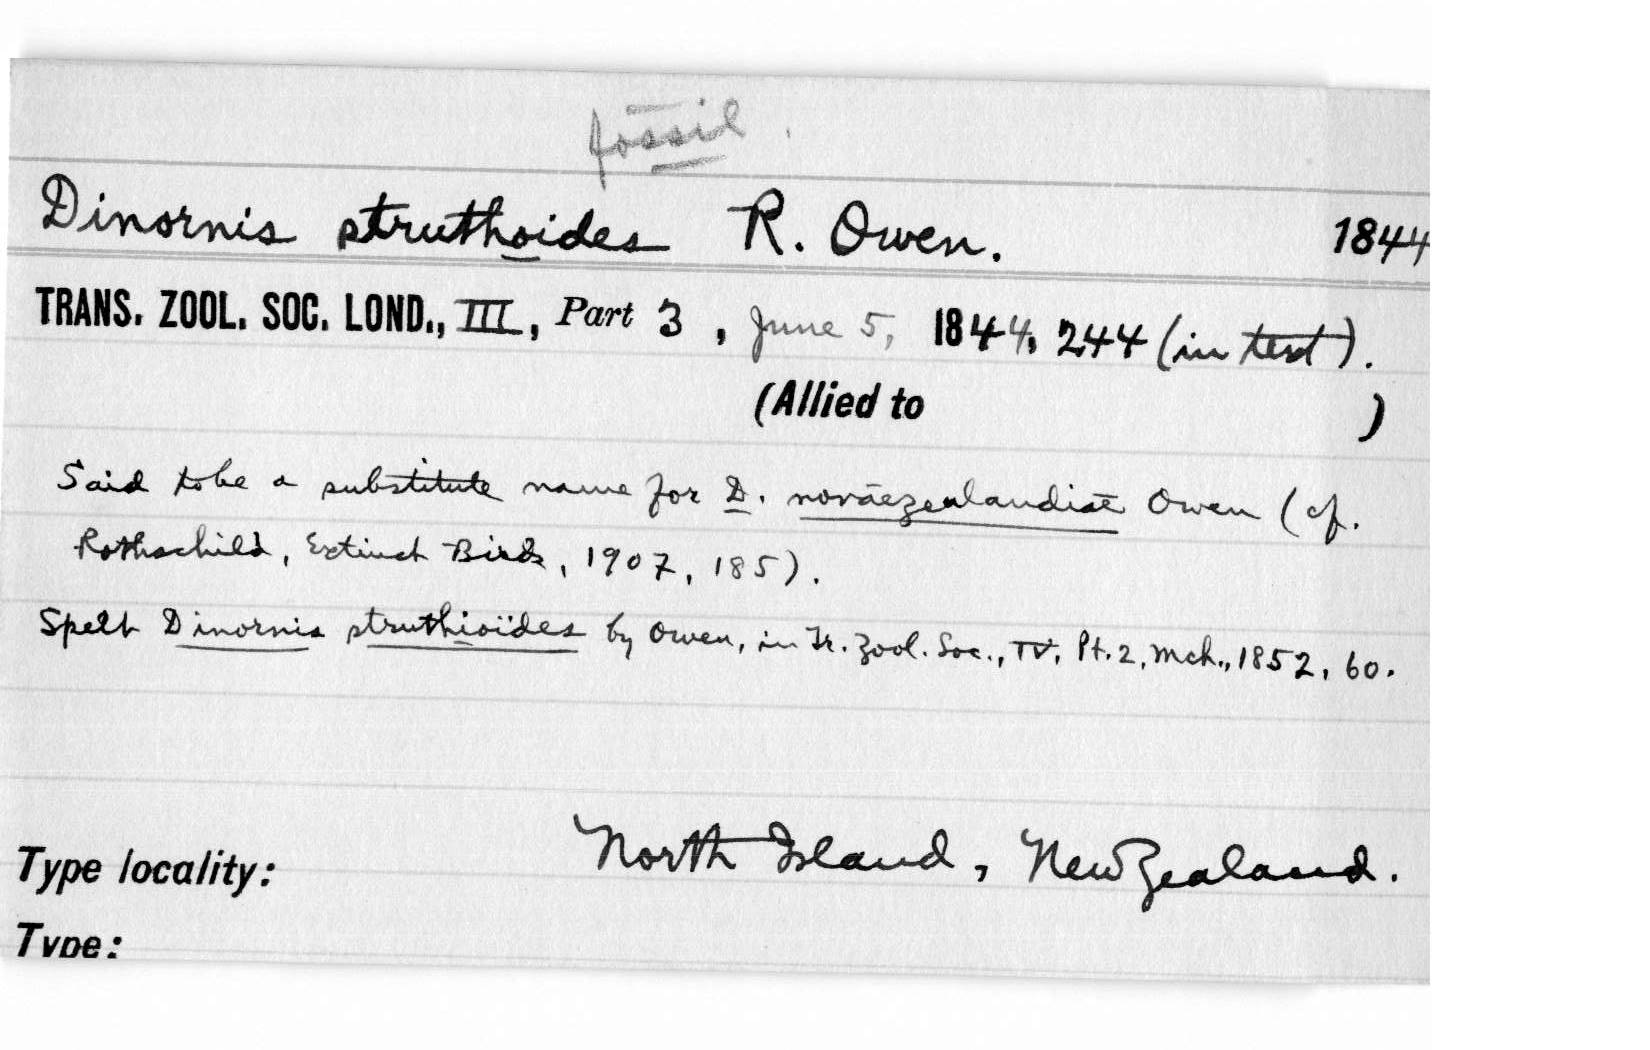 fossil.
Dinornis struthoides R. Owen. 1844
TRANS. ZOOL. SOC. LOND., III, Part 3, June 5, 1844, 244 (in text).
(Allied to )
Said to be a substitute name for D. novaezealandiae Owen (cf.
Rothschild, Extinct Birds, 1907, 185).
Spelt Dinornis struthioïdes by Owen, in Tr. Zool. Soc., IV, Pt. 2, Mch., 1852, 60.
Type locality: North Island, New Zealand.
Type: